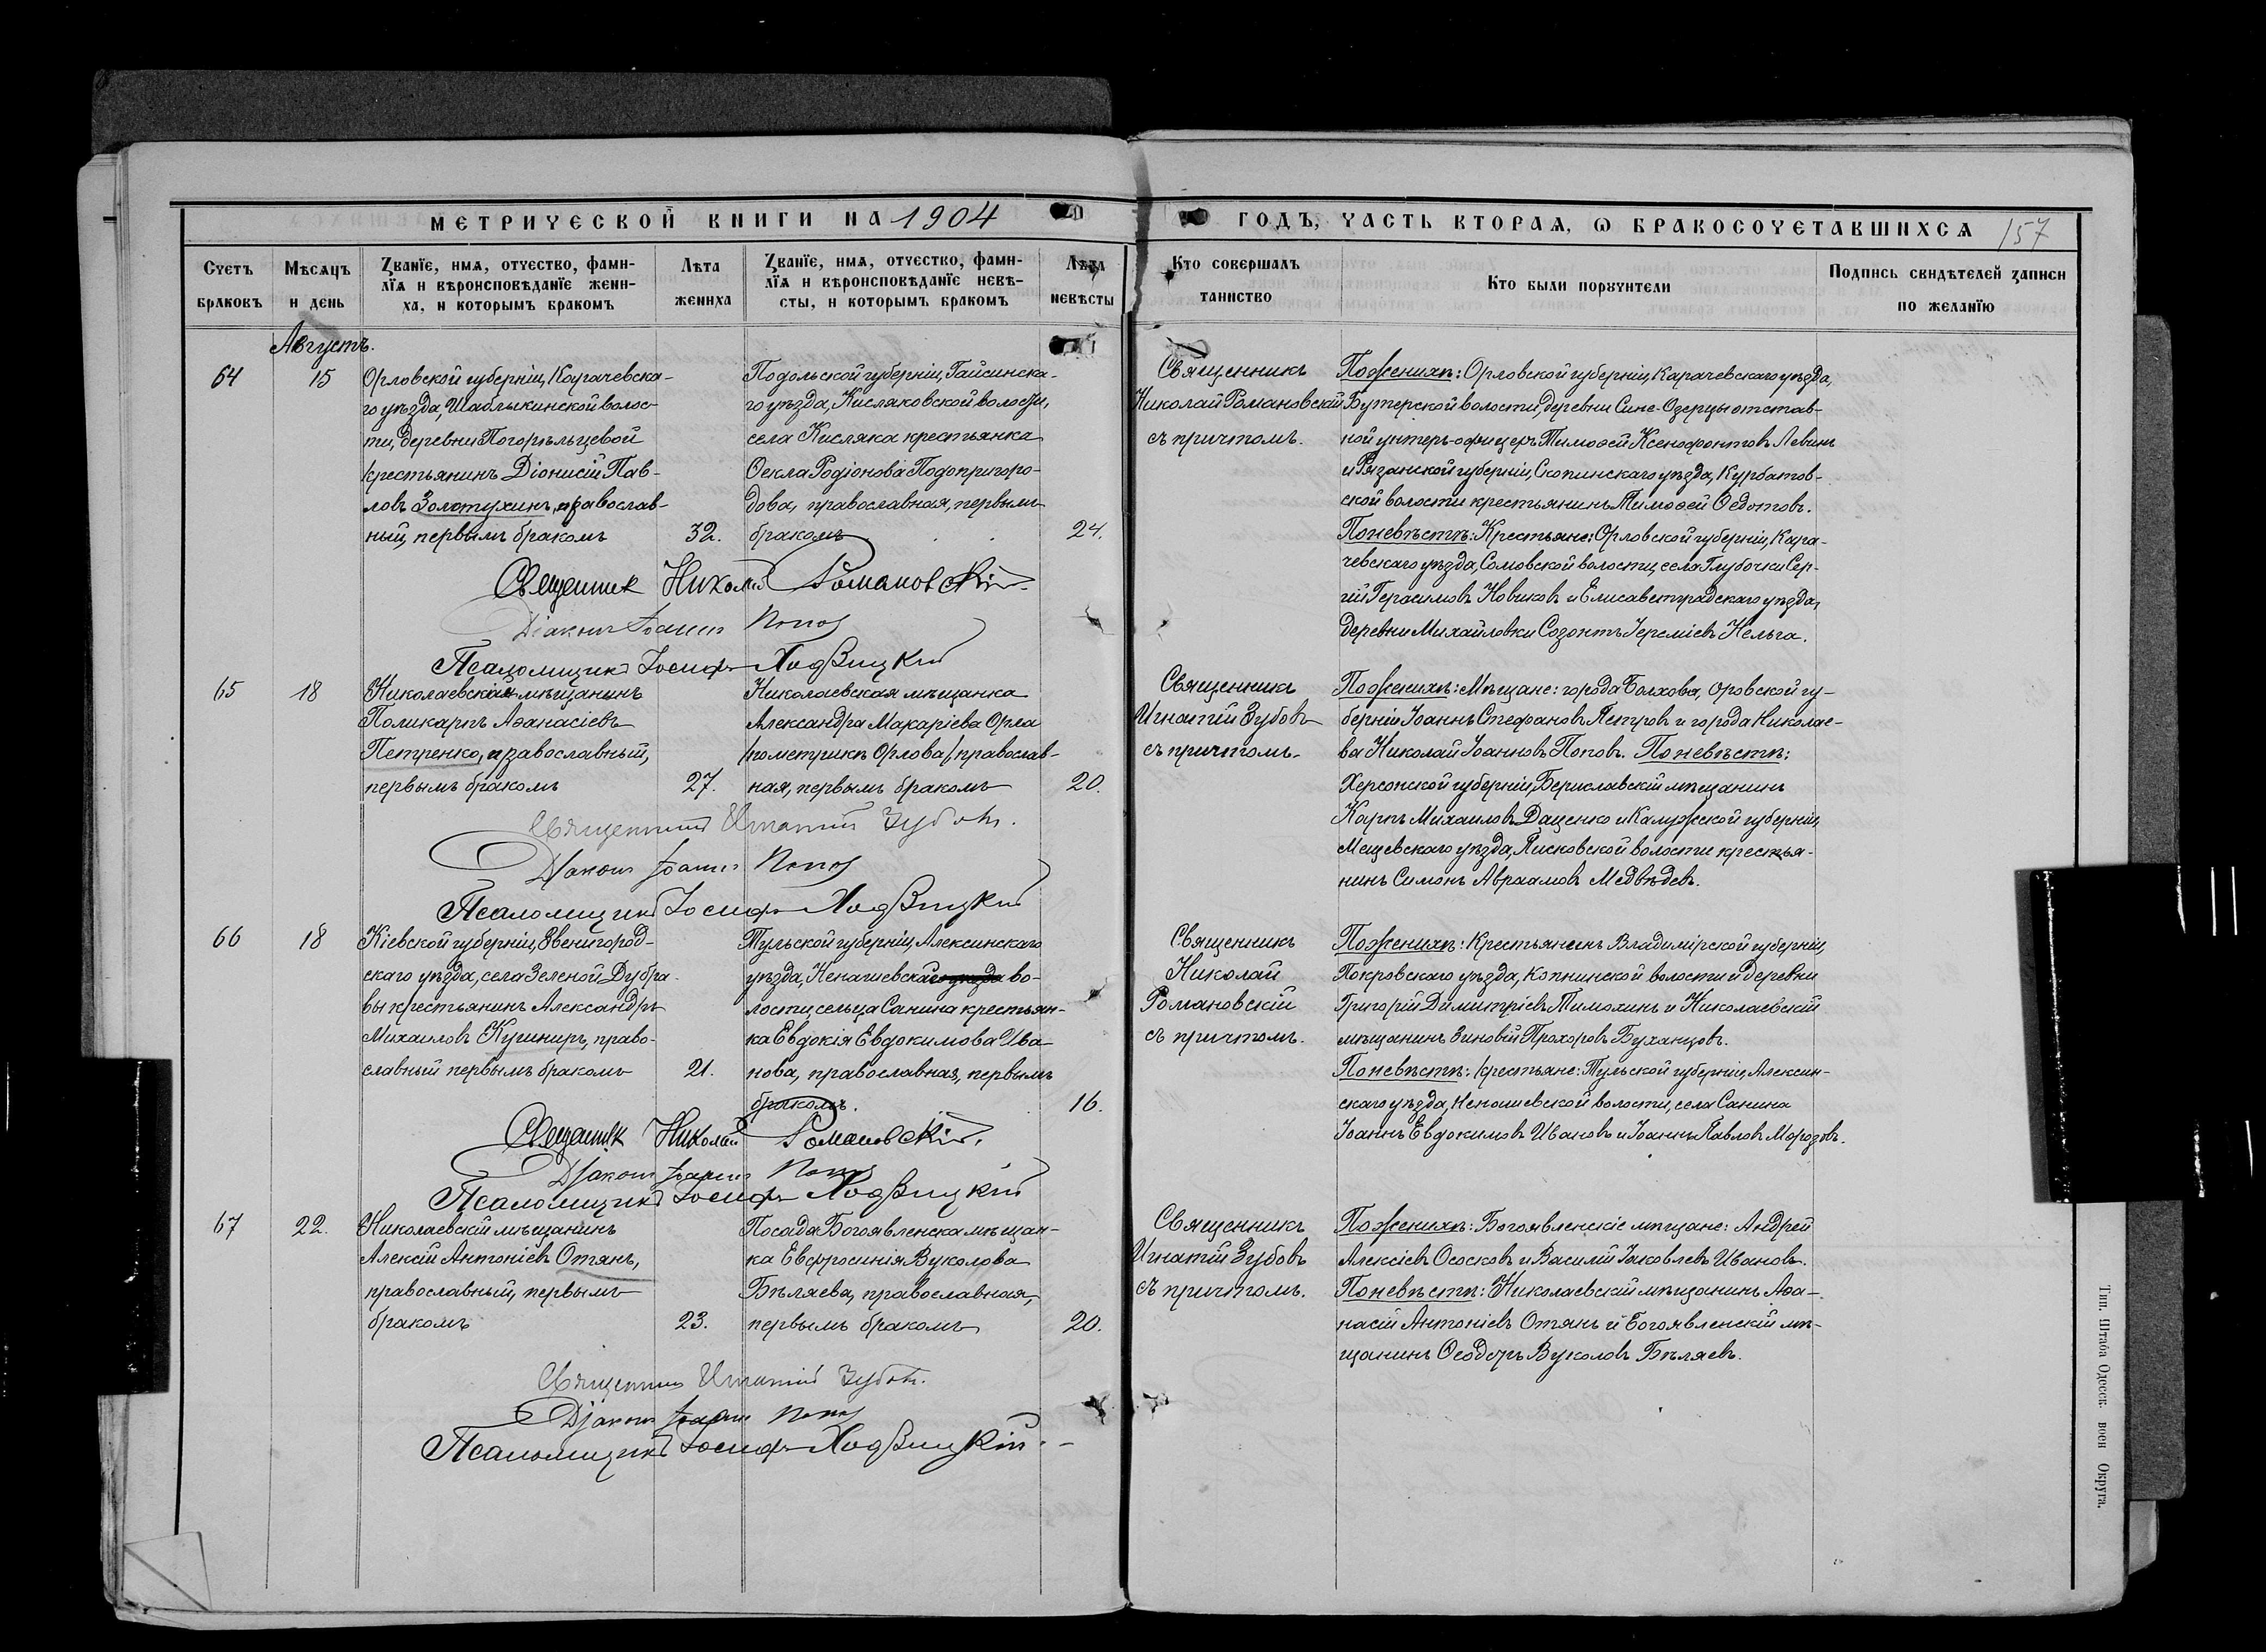 МЕТРИЧЕСКОЙ КНИГИ НА 1904
ГОДЪ, ЧАСТЬ ВТОРАѦ, Ѡ БРАКОСОЧЕТАВШИХСѦ
157
Счетъ браковъ
Мѣсѧцъ и день
Званїе, имѧ, отчество, фами-
лїѧ и вѣроисповѣданїе жени-
ха, и которымъ бракомъ
Лѣта жениха
Званїе, имѧ, отчество, фами-
лїѧ и вѣроисповѣданїе невѣ-
сты, и которымъ бракомъ
Лѣта невѣсты
Кто совершалъ таинство
Кто были порꙋчители
Подпись свидѣтелей записи по желанїю
Августъ.
64
15
Орловской губерніи, Карачевска-
го уѣзда, Шаблыкинской волос-
ти, деревни Погорѣльцевой
крестьянинъ Діонисій Пав-
ловъ Золотухинъ, православ-
ный, первымъ бракомъ
32.
Подольской губерніи, Гайсинска-
го уѣзда, Кисляковской волости,
села Кисляка крестьянка
Ѳекла Родіонова Подопригоро-
дова, православная, первымъ
бракомъ
24.
Священникъ
Николай Романовскій
съ причтомъ.
По женихѣ: Орловской губерніи, Карачевскаго уѣзда,
Бутерской волости, деревни Сине-Озерцы отстав-
ной унтеръ-офицеръ Тимоѳей Ксенофонтовъ Левинъ
и Рязанской губерніи, Скопинскаго уѣзда, Курбатов-
ской волости крестьянинъ Тимоѳей Ѳедотовъ.
По невѣстѣ: Крестьяне: Орловской губерніи, Кара-
чевскаго уѣзда, Сомовской волости, села Глубочки Сер-
гій Герасимовъ Новиковъ и Елисаветградскаго уѣзда,
деревни Михайловки Созонтъ Іереміевъ Кельга.
Священник Николай Романовскій.
Діаконъ Іоаннъ Попов
Псаломщикъ Іосифъ Ходзицкій
65
18
Николаевскій мѣщанинъ
Поликарпъ Аѳанасіевъ
Петренко, православный,
первымъ бракомъ
27.
Николаевская мѣщанка
Александра Макаріева Орла
/по метрикѣ Орлова/, православ-
ная, первымъ бракомъ
20.
Священникъ
Игнатій Зубовъ
съ причтомъ.
По женихѣ: Мѣщане: города Болхова, Оровской гу-
берніи Іоаннъ Стефановъ Петровъ и города Николае-
ва Николай Іоанновъ Поповъ. По невѣстѣ:
Херсонской губерніи, Бериславскій мѣщанинъ
Карпъ Михаиловъ Даценко и Калужской губерніи,
Мещевскаго уѣзда, Писковской волости крестья-
нинъ Симонъ Авраамовъ Медвѣдевъ.
Священникъ Игнатій Зубовъ.
Діаконъ Іоаннъ Попов
Псаломщикъ Іосифъ Ходзицкій
66
18
Кіевской губерніи, Звенигород-
скаго уѣзда, села Зеленой Дубра-
вы крестьянинъ Александръ
Михаиловъ Кушниръ, право-
славный первымъ бракомъ
21.
Тульской губерніи Алексинскаго
уѣзда, Ненашевской во-
лости, сельца Санина крестьян-
ка Евдокія Евдокимова Ива-
нова, православная, первымъ
бракомъ.
16.
Священникъ
Николай
Романовскій
съ причтомъ.
По женихѣ: Крестьянинъ Владимірской губерніи,
Покровскаго уѣзда, Копнинской волости и деревни
Григорій Димитріевъ Тимохинъ и Николаевскій
мѣщанинъ Зиновій Прохоровъ Буханцовъ.
По невѣстѣ: крестьяне: Тульской губерніи, Алексин-
скаго уѣзда, Неношевской волости, села Санина
Іоаннъ Евдокимовъ Ивановъ и Іоаннъ Павловъ Морозовъ.
Священник Николай Романовскій.
Діаконъ Іоаннъ Попов
Псаломщикъ Іосифъ Ходзицкій
67
22.
Николаевскій мѣщанинъ
Алексій Антоніевъ Отянъ,
православный, первымъ
бракомъ
23.
Посада Богоявленска мѣщан-
ка Евфросинія Вуколова
Бѣляева, православная,
первымъ бракомъ
20.
Священникъ
Игнатій Зубовъ
съ причтомъ.
По женихѣ: Богоявленскіе мѣщане: Андрей
Алексіевъ Ососковъ и Василій Іаковлевъ Ивановъ.
По невѣстѣ: Николаевскій мѣщанинъ Аѳа-
насій Антоніевъ Отянъ и Богоявленскій мѣ-
щанинъ Ѳеодоръ Вуколовъ Бѣляевъ.
Священникъ Игнатій Зубовъ.
Діаконъ Іоаннъ Попов
Псаломщикъ Іосифъ Ходзицкій.
Тип. Штаба Одесск. воен Округа.